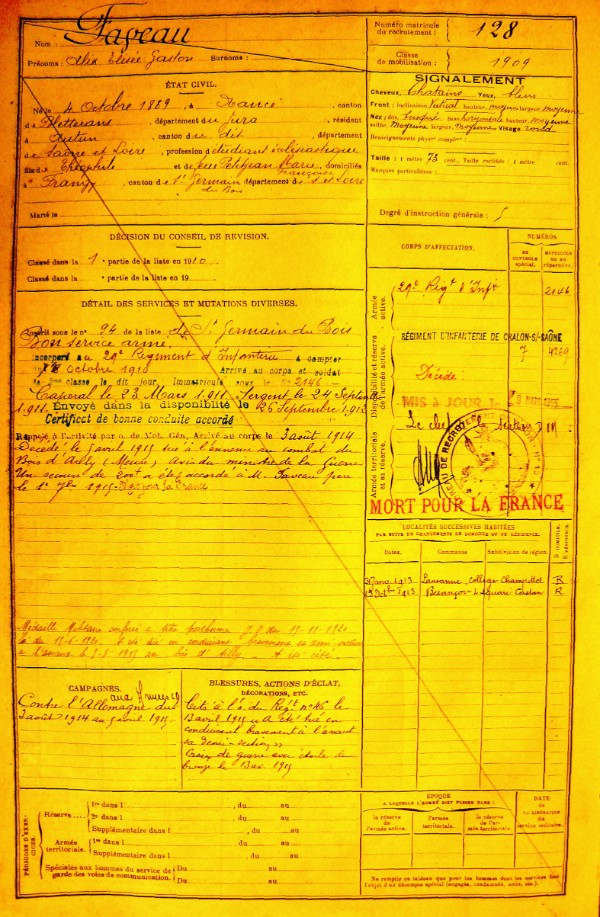 Nom : Faveau
Prénoms : Alix Elisée Gaston Surnoms :
Numéro matricule du recrutement : 128
Classe de mobilisation : 1909
ÉTAT CIVIL.
Né le 4 Octobre 1889, à, canton
de Bletterans, département du Jura, résidant
à Autun, canton du dit, département
de Saône et Loire, profession d'étudiant ecclésiastique
fils de Théophile et de feue Petitjean Marie Françoise, domiciliés
à Frangy, canton de St Germain du Bois, département de S. et Loire
Marié le
SIGNALEMENT
Cheveux, Chatains Yeux, bleus
Front : inclinaison Vertical hauteur, moyenne largeur moyenne
Nez : dos, base horizontale hauteur, moyenne
saillie, Moyenne largeur, Moyenne Visage rond
Renseignements physion. complém. :
Taille : 1 mètre 73 cent. Taille rectifiée : 1 mètre cent.
Marques particulières :
Degré d'instruction générale : 5
DÉCISION DU CONSEIL DE REVISION.
Classé dans la 1e partie de la liste en 1910
Classé dans la partie de la liste en 19
DÉTAIL DES SERVICES ET MUTATIONS DIVERSES.
Inscrit sous le n° 94 de la liste de St Germain du Bois
Bon service armé
Incorporé au 29e Régiment d'Infanterie à compter
du octobre 1910 Arrivé au corps et soldat
de 2me classe le dit jour Immatriculé sous le No 2146
Caporal le 23 Mars 1911 Sergent le 24 Septembre
1911 Envoyé dans la disponibilité le 26 Septembre 1912
Certificat de bonne conduite accordé
Rappelé à l'activité par o. de Mob. Gén. Arrivé au corps le 3 août 1914
Décédé le 5 avril 1915 tué à l'ennemi au combat du
Bois d'Ailly (Meuse) Avis du ministre de la Guerre
Un secours de 200f a été accordé à M. Faveau père
le 1er 7bre 1915 Mort pour la France
Médaille Militaire conféré à titre posthume J.O. du 19-11-1920
CORPS D'AFFECTATION.
NUMÉROS
au contrôle spécial.
matricule ou au répertoire.
Armée active.
29e Régt d'Infie 2146
Disponibilité et réserve de l'armée active.
RÉGIMENT D'INFANTERIE DE CHALON-S/-SAÔNE
7 4269
Décédé
MIS À JOUR LE
Armée territoriale et sa réserve.
MORT POUR LA FRANCE
LOCALITÉS SUCCESSIVES HABITÉES
PAR SUITE DE CHANGEMENTS DE DOMICILE OU DE RÉSIDENCE.
Dates. Communes Subdivision de région. D. domicile, R. résidence.
1913 Lausanne, Collège Champittet R
1913 Besançon 4 Square Castan R
CAMPAGNES.
aux Armées
Contre l'Allemagne du
3 août 1914 au 5 avril 1915
BLESSURES, ACTIONS D'ÉCLAT,
DÉCORATIONS, ETC.
Cité à l'o. du Régt n° 16 le
13 avril 1915 « A été tué en
conduisant bravement à l'assaut
sa demi-section »
Croix de guerre avec étoile de
bronze le 13 av. 1915
PÉRIODES D'EXERCICES.
Réserve
1re dans l , du au
2e dans l , du au
Supplémentaire dans l , du au
Armée territoriale.
1re dans l , du au
Supplémentaire dans l , du au
Spéciales aux hommes du service de garde des voies de communication.
Du au
Du au
ÉPOQUE
À LAQUELLE L'HOMME DOIT PASSER DANS :
la réserve de l'armée active.
l'armée territoriale.
la réserve de l'armée territoriale.
DATE
DE LA LIBÉRATION DU service militaire.
Ne remplir ce tableau que pour les hommes dont les services sont
l'objet d'un décompte spécial (engagés, condamnés, omis, etc.).